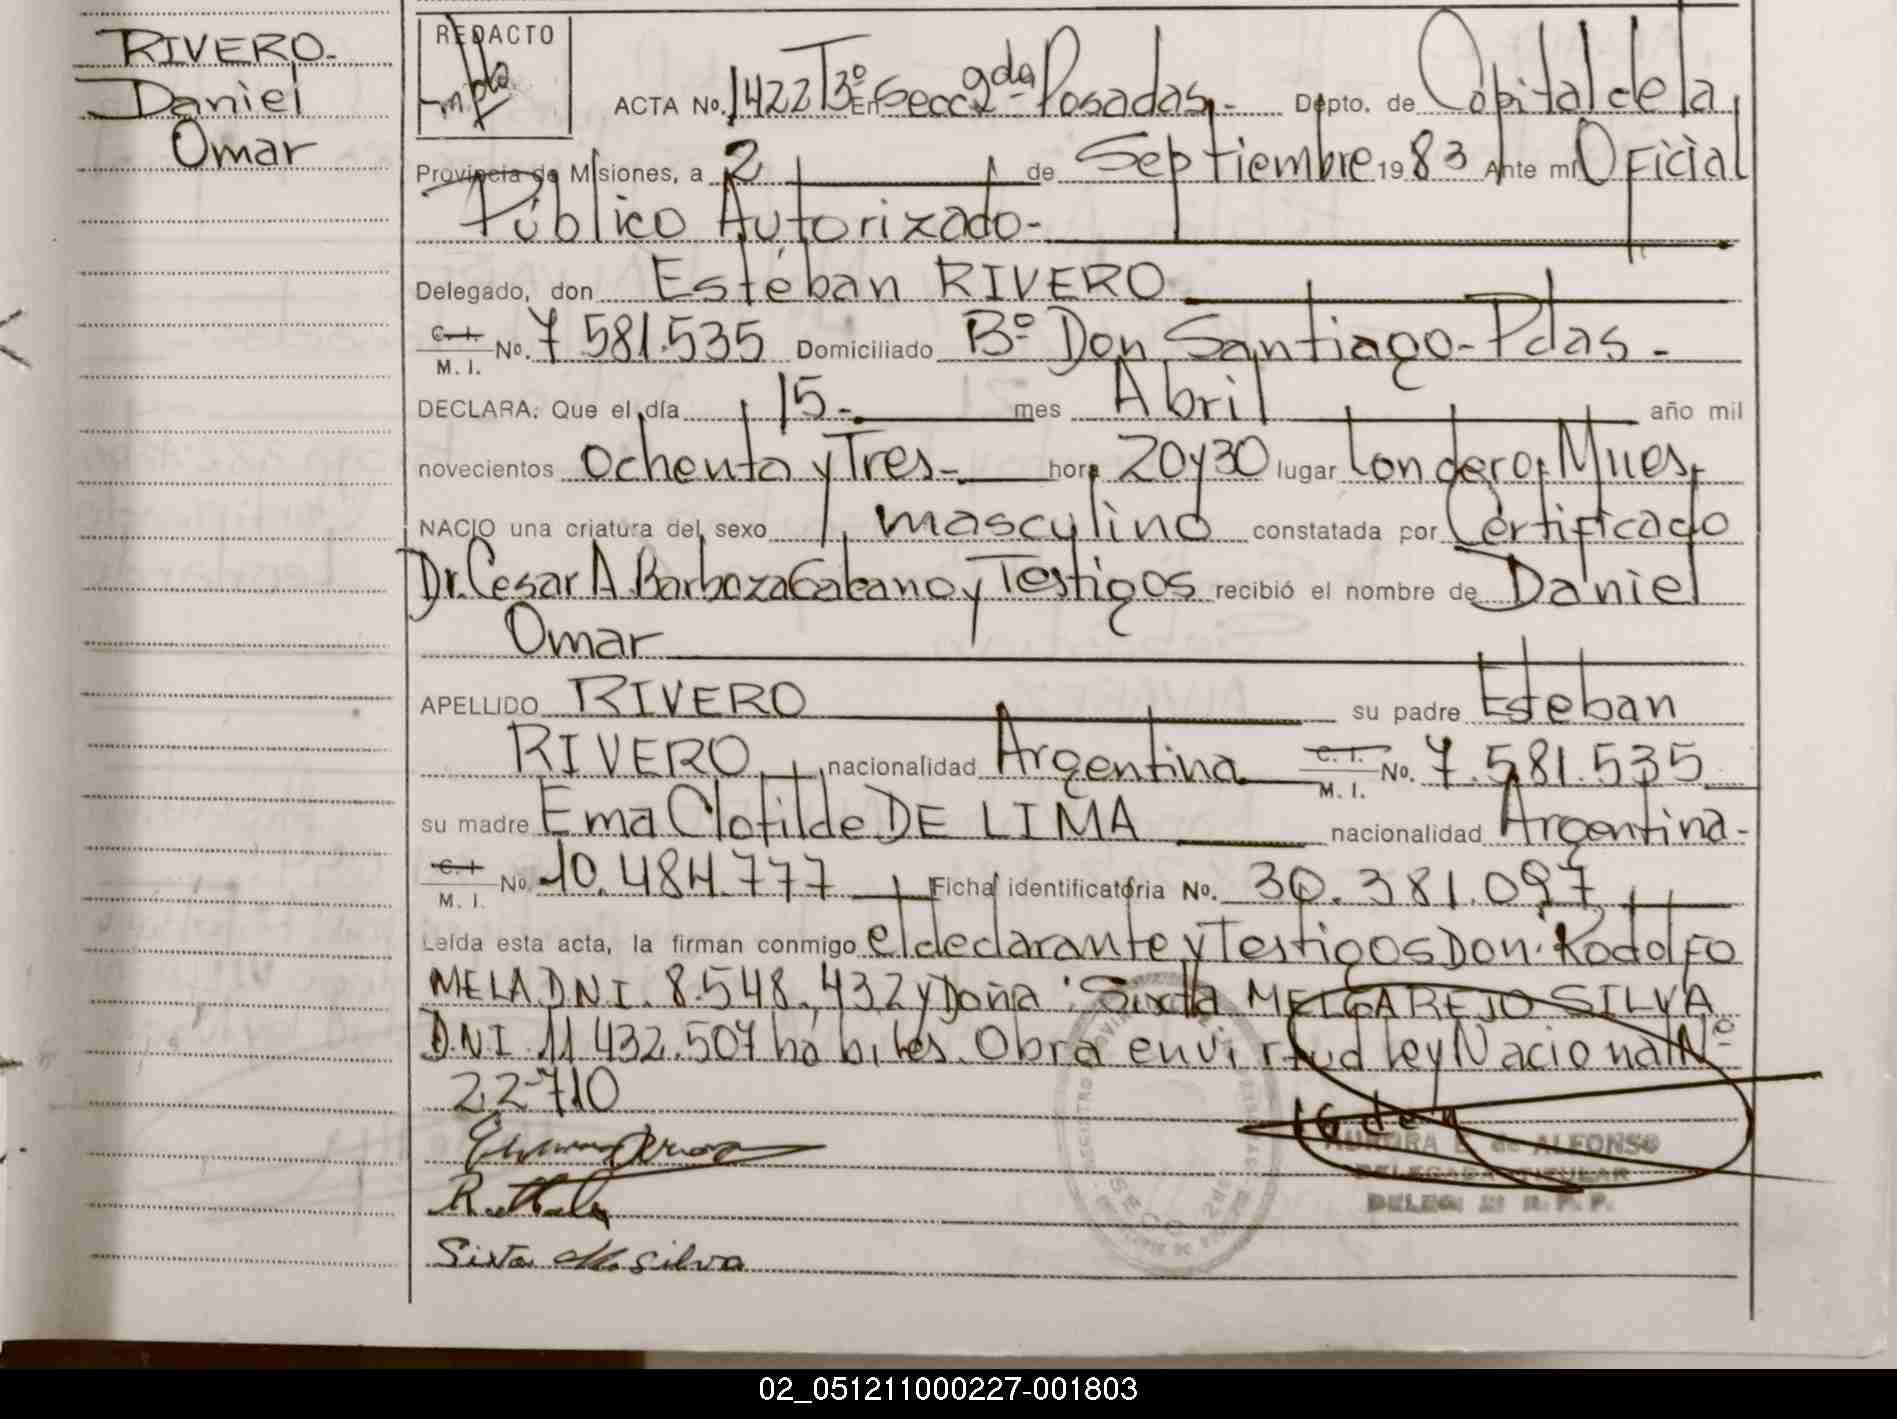 RIVERO-
Daniel
Omar
REDACTO
ACTA No. 1422 T3º En Secc 2da Posadas,- Depto. de Capital de la
Provincia de Misiones, a 2 de Septiembre 1983 Ante mí Oficial
Público Autorizado-
Delegado, don Estéban RIVERO
C.I. M. I. No. 7.581.535 Domiciliado Bº Don Santiago-Pdas-
DECLARA: Que el día 15- mes Abril año mil
novecientos ochenta y Tres- hora 20y30 lugar Londero, Mnes,
NACIO una criatura del sexo masculino constatada por Certificado
Dr. Cesar A. Barboza y Testigos recibió el nombre de Daniel
Omar
APELLIDO RIVERO su padre Esteban
RIVERO nacionalidad Argentina C. I. M. I. No. 7.581.535
su madre Ema Clotilde DE LIMA nacionalidad Argentina-
C.I. M. I. No. 10.484.777 Ficha identificatoria No. 30.381.097
Leída esta acta, la firman conmigo el declarante y Testigos Don: Rodolfo
MELA DNI. 8.548.432 y Doña: Sixta MELGAREJO SILVA
D.N.I. 11.432.507 hábiles. Obra en virtud ley Nacional Nº
22710
AURORA de ALFONSO
DELEGADA TITULAR
DELEG. R. P. P.
Sixta M. silva
02_051211000227-001803